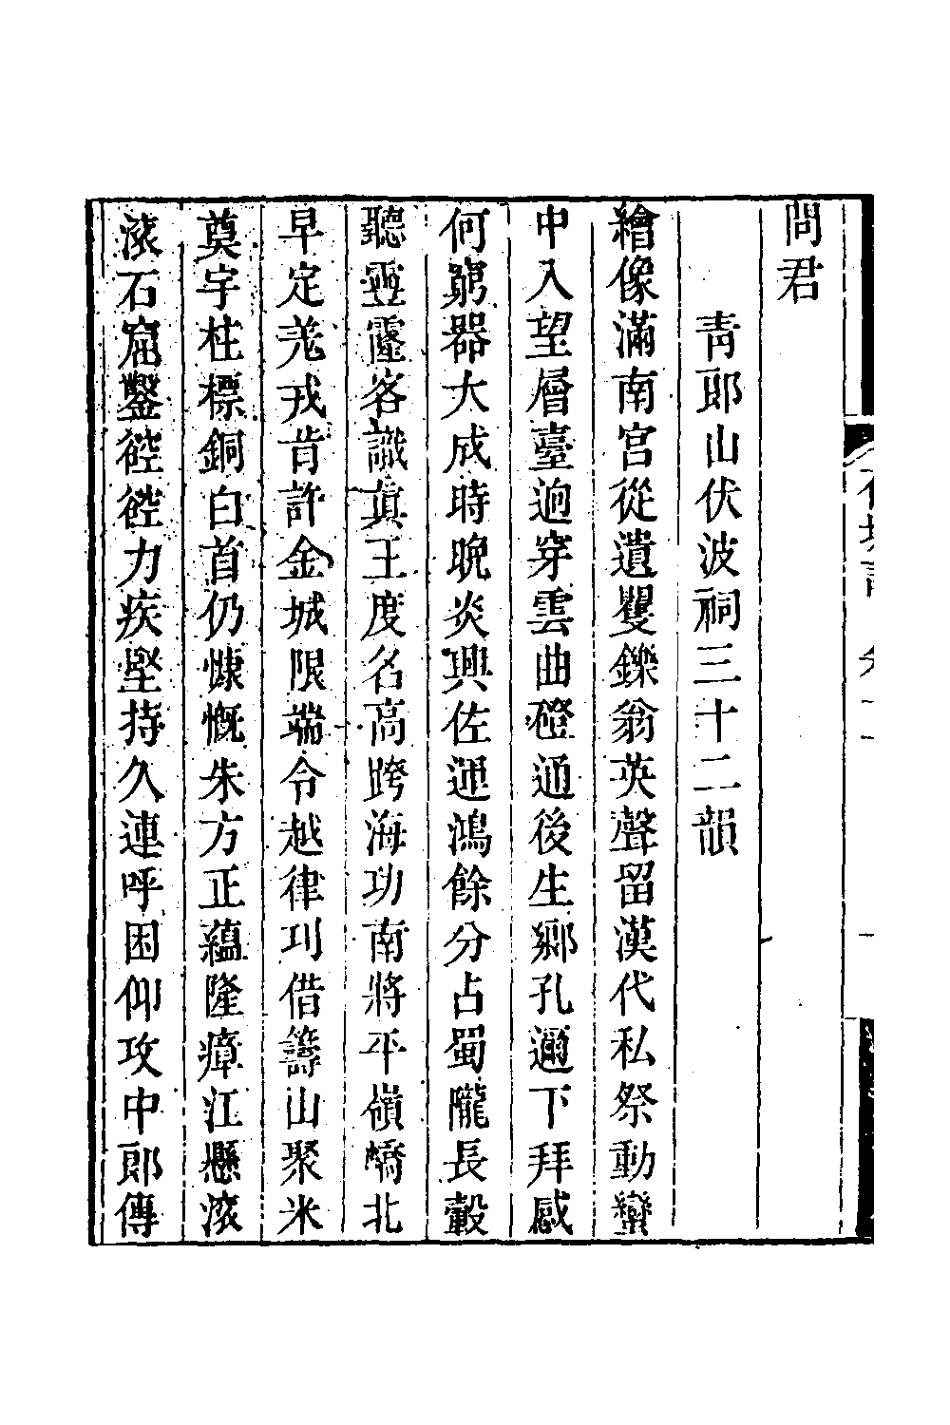 問君
青郎山伏波祠三十二韻
繪像滿南宮從遺矍鑠翁英聲留漢代私祭動蠻
中入望層臺迥穿雲曲磴通後生鄉孔邇下拜感
何窮器大成時晚炎興佐運鴻餘分占蜀隴長轂
聽靈靈客識真王度名高跨海功南將平嶺嶠北
早定羌戎肯許金城限端令越律刓借籌山聚米
奠宇柱標銅白首仍慷慨朱方正蘊隆瘴江懸滾
滾石窟鑿谾谾力疾堅持久連呼困仰攻中郎傳